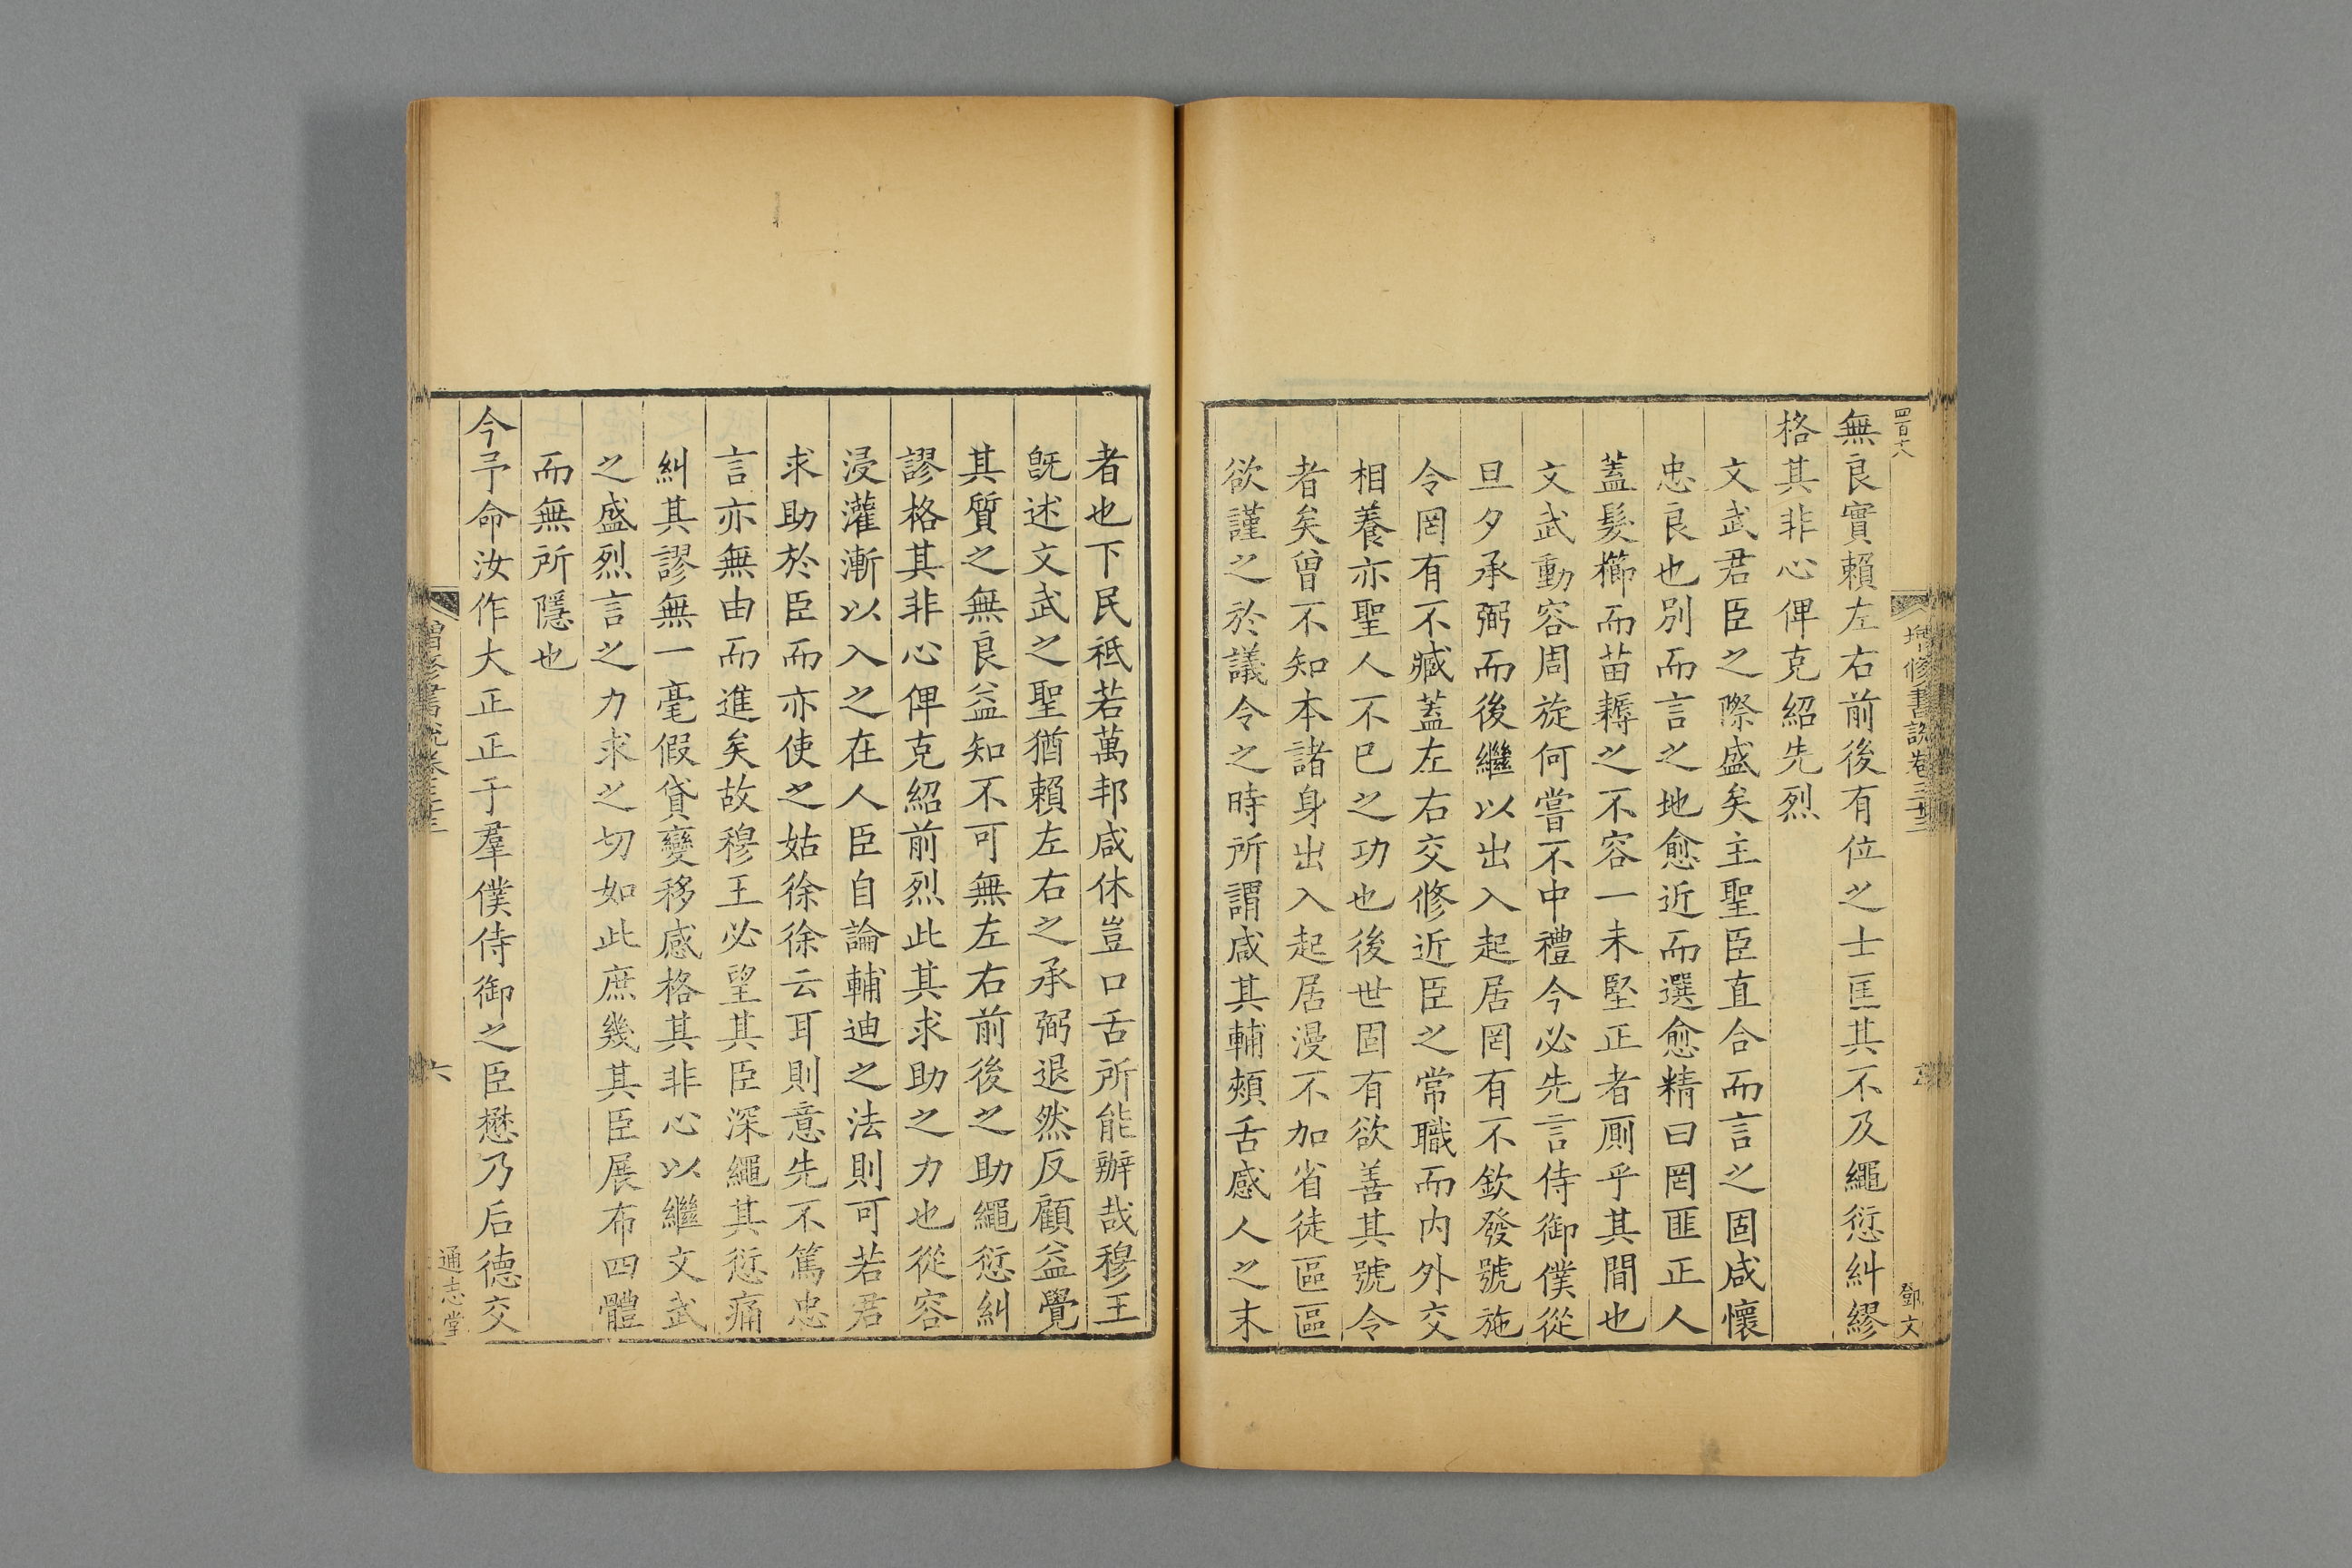 四百十八
無良實賴左右前後有位之士匡其不及繩愆糾繆
格其非心俾克紹先烈
文武君臣之際盛矣主聖臣直合而言之固咸懷
忠良也別而言之地愈近而選愈精曰罔匪正人
蓋髮櫛而苗耨之不容一未堅正者厠乎其間也
文武動容周旋何嘗不中禮今必先言侍御僕從
旦夕承弼而後繼以出入起居罔有不欽發號施
令罔有不臧蓋左右交修近臣之常職而内外交
相養亦聖人不已之功也後世固有欲善其號令
者矣曾不知本諸身出入起居漫不加省徒區區
欲謹之於議令之時所謂咸其輔頰舌感人之末
增修書說卷三十三
鄧文
者也下民祗若萬邦咸休豈口舌所能辦哉穆王
旣述文武之聖猶賴左右之承弼退然反顧益覺
其質之無良益知不可無左右前後之助繩愆糾
謬格其非心俾克紹前烈此其求助之力也從容
浸灌漸以入之在人臣自論輔迪之法則可若君
求助於臣而亦使之姑徐徐云耳則意先不篤忠
言亦無由而進矣故穆王必望其臣深繩其愆痛
糾其謬無一毫假貸變移感格其非心以繼文武
之盛烈言之力求之切如此庶幾其臣展布四體
而無所隱也
今予命汝作大正正于羣僕侍御之臣懋乃后德交
增修書說卷三十三
六
通志堂